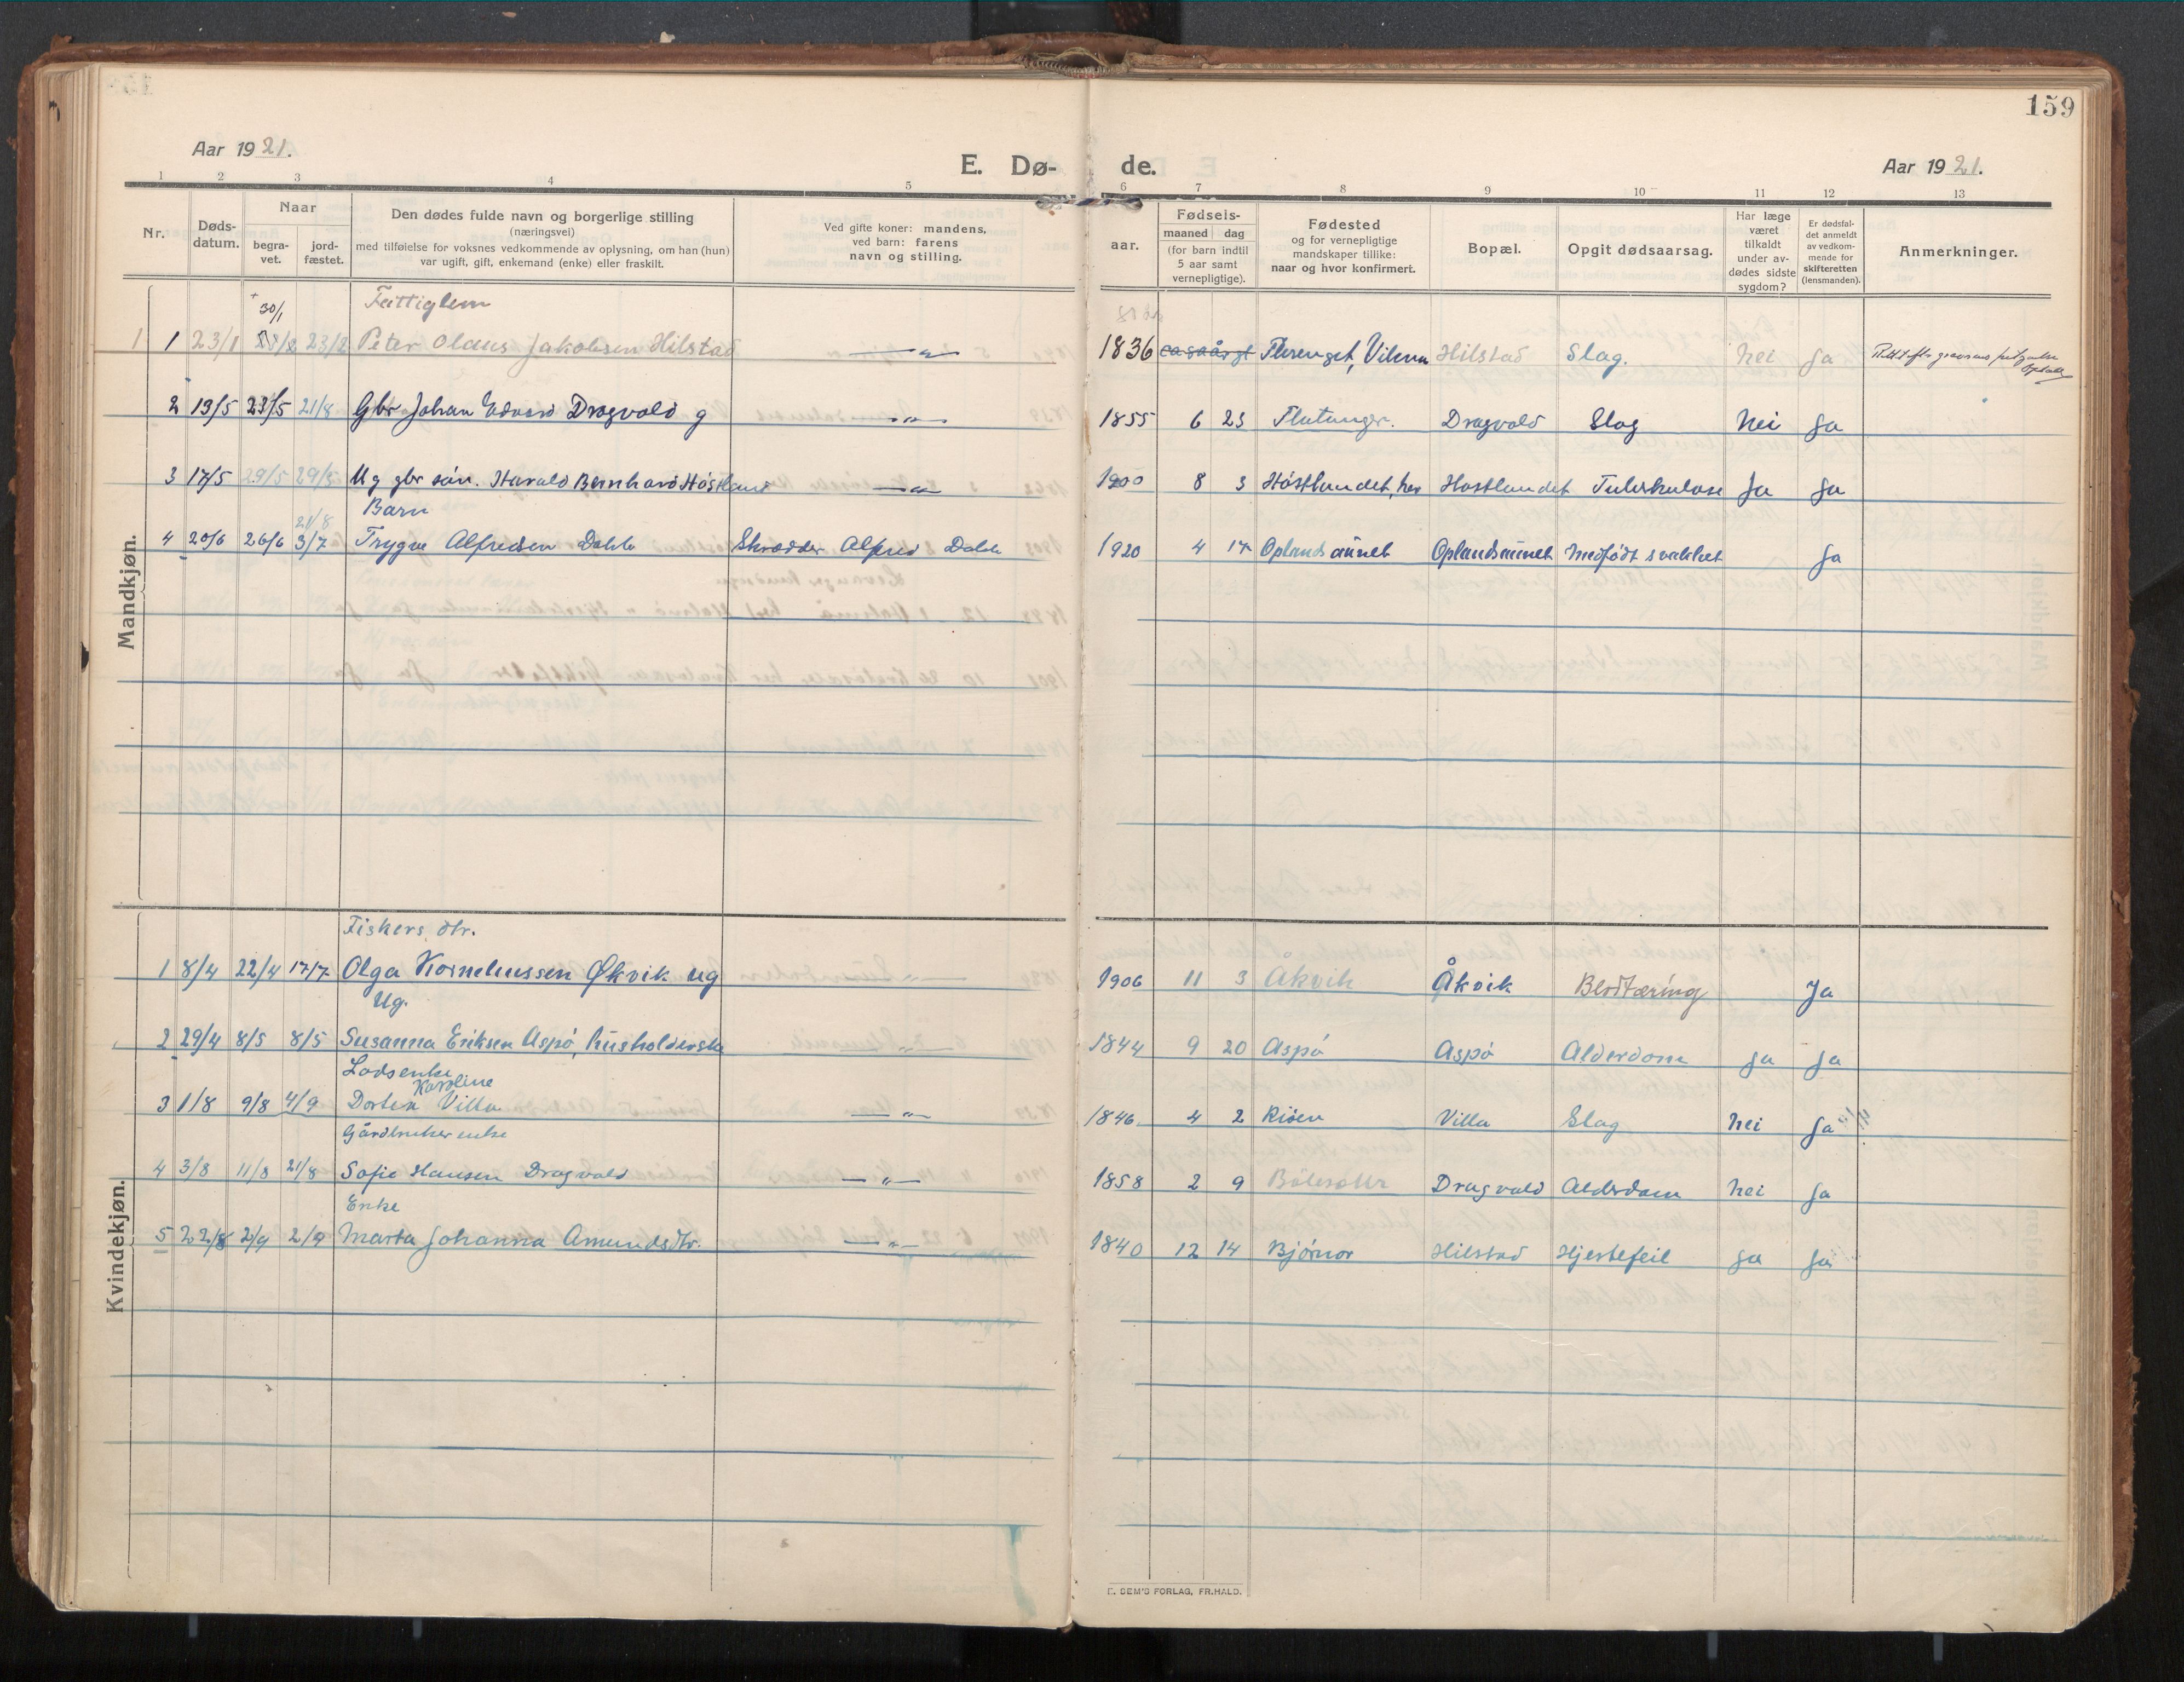 159
Aar 1921.
E. Dø- de.
Aar 1921.
1 2 3 4 5 6 7 8 9 10 11 12 13
Nr.
Døds-
datum.
Naar
begra-
vet.
jord-
fæstet.
Den dødes fulde navn og borgerlige stilling
(næringsvei)
med tilføielse for voksnes vedkommende av oplysning, om han (hun)
var ugift, gift, enkemand (enke) eller fraskilt.
Ved gifte koner: mandens,
ved barn: farens
navn og stilling.
aar.
Fødsels-
maaned dag
(for barn indtil
5 aar samt
vernepligtige).
Fødested
og for vernepligtige
mandskaper tillike:
naar og hvor konfirmert.
Bopæl.
Opgit dødsaarsag.
Har læge
været
tilkaldt
under av-
dødes sidste
sygdom?
Er dødsfal-
det anmeldt
av vedkom-
mende for
skifteretten
(lensmanden).
Anmerkninger.
Mandkjøn.
30/1 Fattiglem
1 1 23/1 23/2 Peter Olaus Jakobsen Hilstad —„— 1836 Flerenget, Vikna Hilstad Slag. Nei Ja
2 13/5 23/5 21/8 Gbr Johan Edvard Dragvold g —„— 1855 6 23 Flatanger. Dragvold Slag Nei Ja
3 17/5 29/5 29/5 Ug gbr sön. Harald Bernhard Höstland —„— 1900 8 3 Höstlandet, her Hostlandet Tuberkulose Ja Ja
21/8 Barn
4 20/6 26/6 3/7 Trygve Alfredsen Dahle Skrædder Alfred Dahle 1920 4 17 Oplandsaunet Oplandsaunet Medfödt svakhet Ja
Kvindekjøn.
Fiskers dtr.
1 8/4 22/4 17/7 Olga Korneliussen Økvik ug „ 1906 11 3 Åkvik Åkvik Blodtæring Ja
Ug.
2 29/4 8/5 8/5 Susanna Eriksen Aspö, husholderske „ 1844 9 20 Aspö Aspö Alderdom Ja Ja
Lodsenke
Karoline
3 1/8 9/8 4/9 Dortea Villa —„— 1846. 4 2 Risen Villa Slag Nei Ja
Gårdbruker enke
4 3/8 11/8 21/8 Sofie Hansen Dragvold —„— 1858 2 9 Dragvold Alderdom Nei Ja
Enke
5 22/8 2/9 2/9 Marta Johanna Amundsdtr. —„— 1840 12 14 Bjørnor Hilstad Hjertefeil Ja Ja
E. SEM'S FORLAG, FR.HALD.